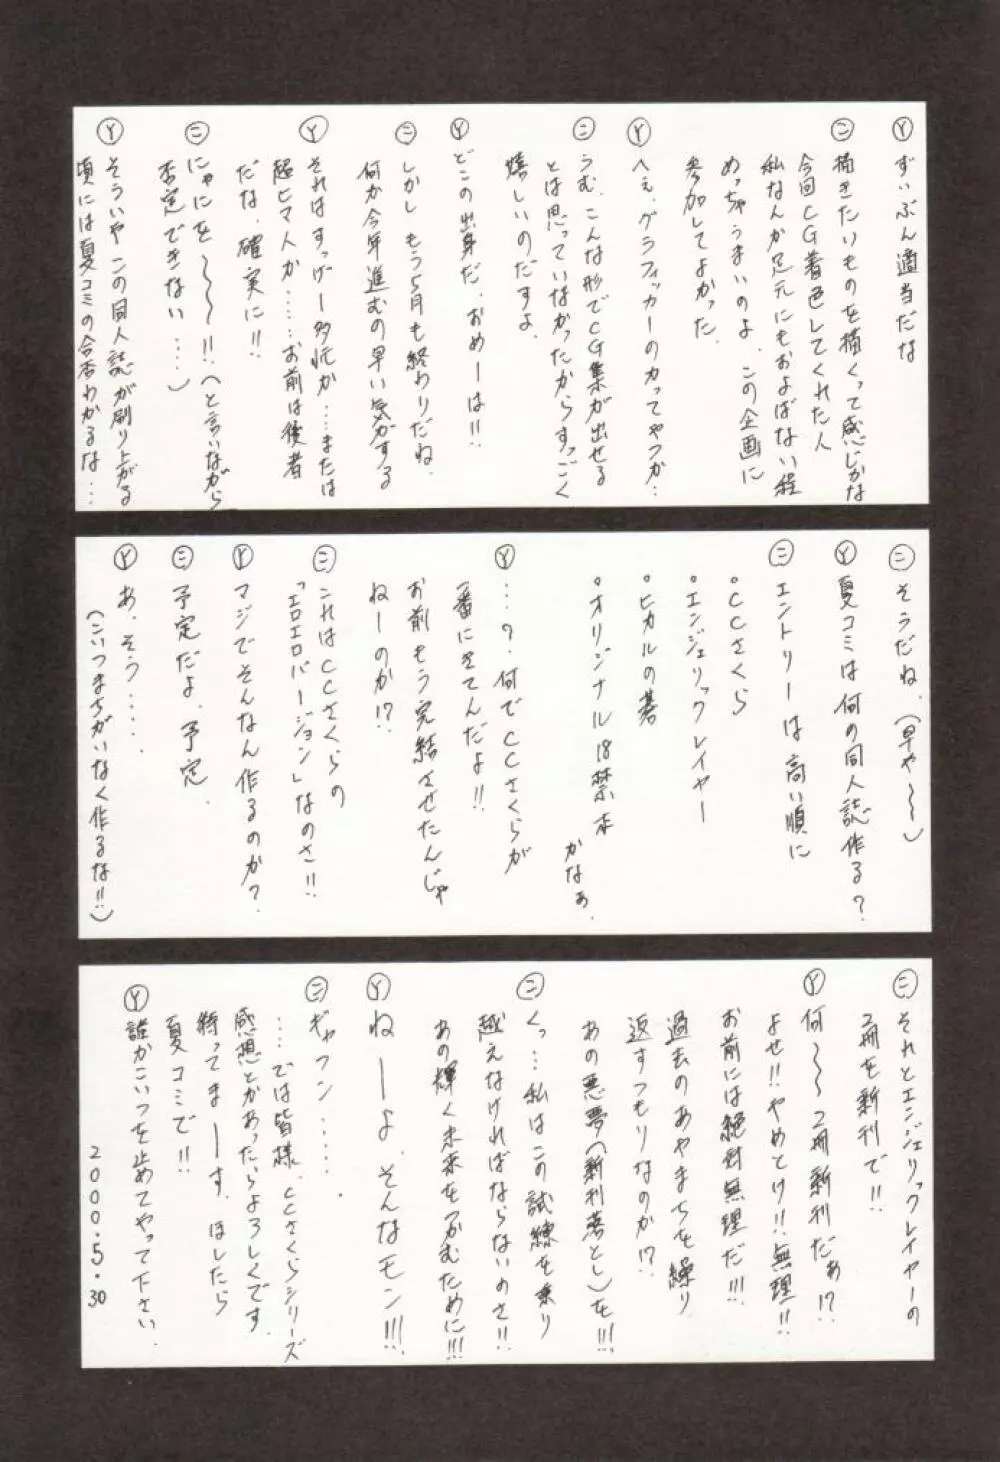 Ⓨ ずいぶん適当だな
㊁ 描きたいものを描くって感じかな
今回CG着色してくれた人
私なんか足元にもおよばない程
めっちゃうまいのよ、この企画に
参加してよかった。
Ⓨ へぇ、グラフィッカーのカってやつか…
㊁ うむ、こんな形でCG集が出せる
とは思っていなかったからすっごく
嬉しいのだすよ。
Ⓨ どこの出身だ、おめーは!!
㊁ しかし もう5月も終わりだね。
何か今年進むの早い気がする
Ⓨ それはすっげー多忙か……または
超ヒマ人か……お前は後者
だな、確実に!!
㊁ にゃにを〜〜〜!!(と言いながら
否定できない……)
Ⓨ そういや この同人誌が刷り上がる
頃には夏コミの合否わかるな…
㊁ そうだね。(早や〜〜)
Ⓨ 夏コミは何の同人誌作る?
㊁ エントリーは高い順に
・CCさくら
・エンジェリックレイヤー
・ヒカルの碁
・オリジナル18禁本
かなぁ。
Ⓨ …?何でCCさくらが
一番にきてんだよ!!
お前もう完結させたんじゃ
ねーのか!?
㊁ これはCCさくらの
「エロエロバージョン」なのさ!!
Ⓨ マジでそんなん作るのか?
㊁ 予定だよ、予定。
Ⓨ あ、そう……。
(こいつまちがいなく作るな!!)
㊁ それとエンジェリックレイヤーの
2冊を新刊で!!
Ⓨ 何〜〜2冊新刊だぁ!?
よせ!!やめとけ!!無理!!
お前には絶対無理だ!!!
過去のあやまちを繰り
返すつもりなのか!?
あの悪夢(新刊落とし)を!!!
㊁ くっ…私はこの試練を乗り
越えなければならないのさ!!
あの輝く未来をつかむために!!!
Ⓨ ねーーよ、そんなモン!!!
㊁ ギャフン……。
……では皆様、CCさくらシリーズ
感想とかあったらよろしくです。
待ってまーーす。ほしたら
夏コミで!!
Ⓨ 誰かこいつを止めてやって下さい。
2000.5.30